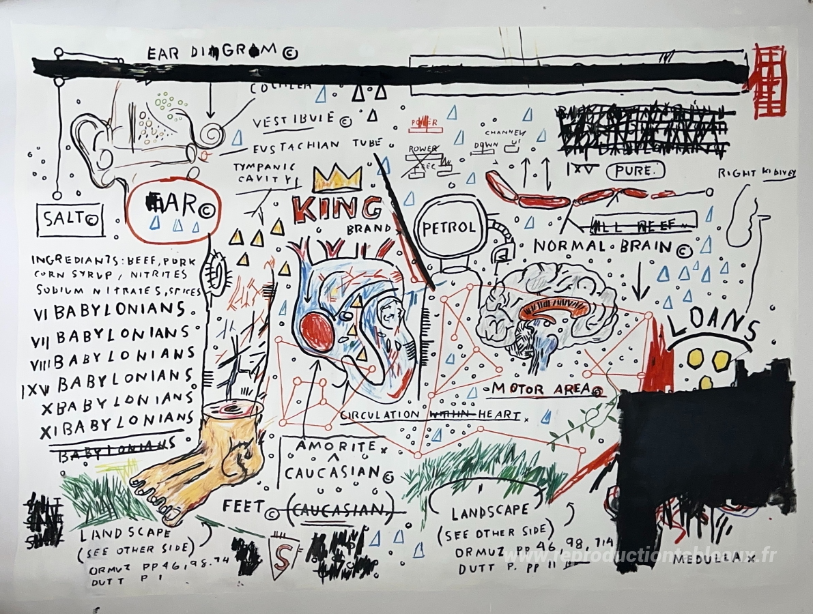 EAR DIAGRAM ©
COCHLEA
VESTIBULE ©
EUSTACHIAN TUBE
TYMPANIC
CAVITY
EAR ©
SALT ©
KING
BRAND
POWER
POWER
DOWN
CHANNEL
PETROL
PURE.
IXV
ALL BEEF
NORMAL BRAIN ©
RIGHT KIDNEY
LOANS
INGREDIANTS: BEEF, PORK
CORN SYRUP, NITRITES
SODIUM NITRATES, SPICES
VI BABYLONIANS
VII BABYLONIANS
VIII BABYLONIANS
IXV BABYLONIANS
X BABYLONIANS
XI BABYLONIANS
BABYLONIANS
MOTOR AREA ©
CIRCULATION WITHIN HEART x
AMORITE x
CAUCASIAN ©
FEET © (CAUCASIAN)
LANDSCAPE
(SEE OTHER SIDE)
ORMUZ PP 46, 98. 74
DUTT P 1
S
LANDSCAPE
(SEE OTHER SIDE)
ORMUZ PP 46, 98, 714
DUTT P. PP 11
MEDULLA x
www.reproductiontableaux.fr